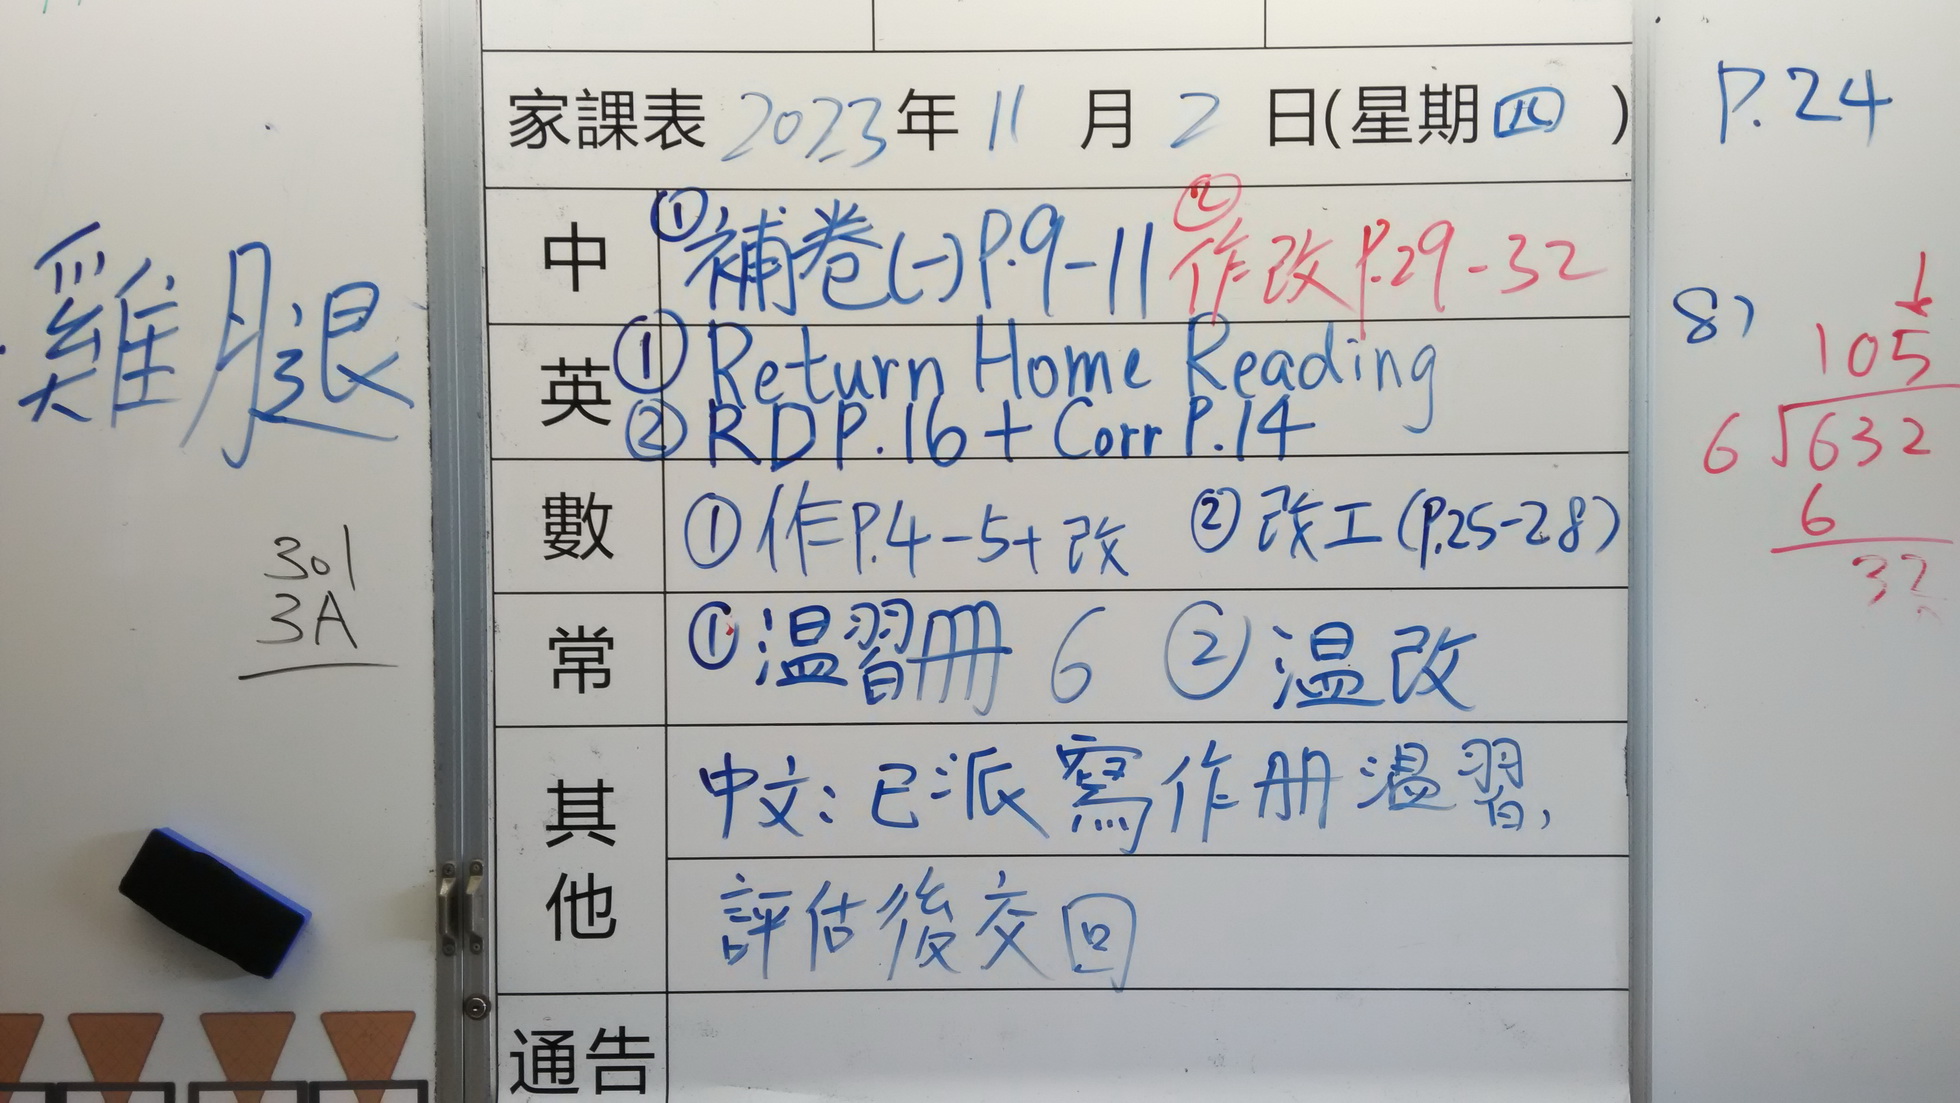 雞腿
301
3A
家課表 2023年 11 月 2 日(星期四)
中 ①補卷(一)P.9-11 ②作改P.29-32
英 ①Return Home Reading
②RD P.16 + Corr P.14
數 ①作P.4-5+改 ②改工(P.25-28)
常 ①温習冊 6 ②温改
其他 中文:已派寫作册温習,
評估後交回
通告
P.24
8)
105
6 632
6
32